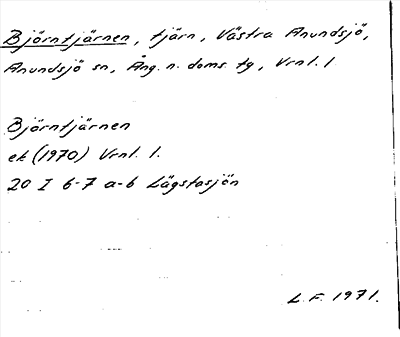 Björntjärnen, tjärn, Västra Anundsjö,
Anundsjö sn, Ång. n. doms. tg, Vrnl. l
Björntjärnen
ek (1970) Vrnl. l.
20 I 6-7 a-b Lägstasjön
L. F. 1971.